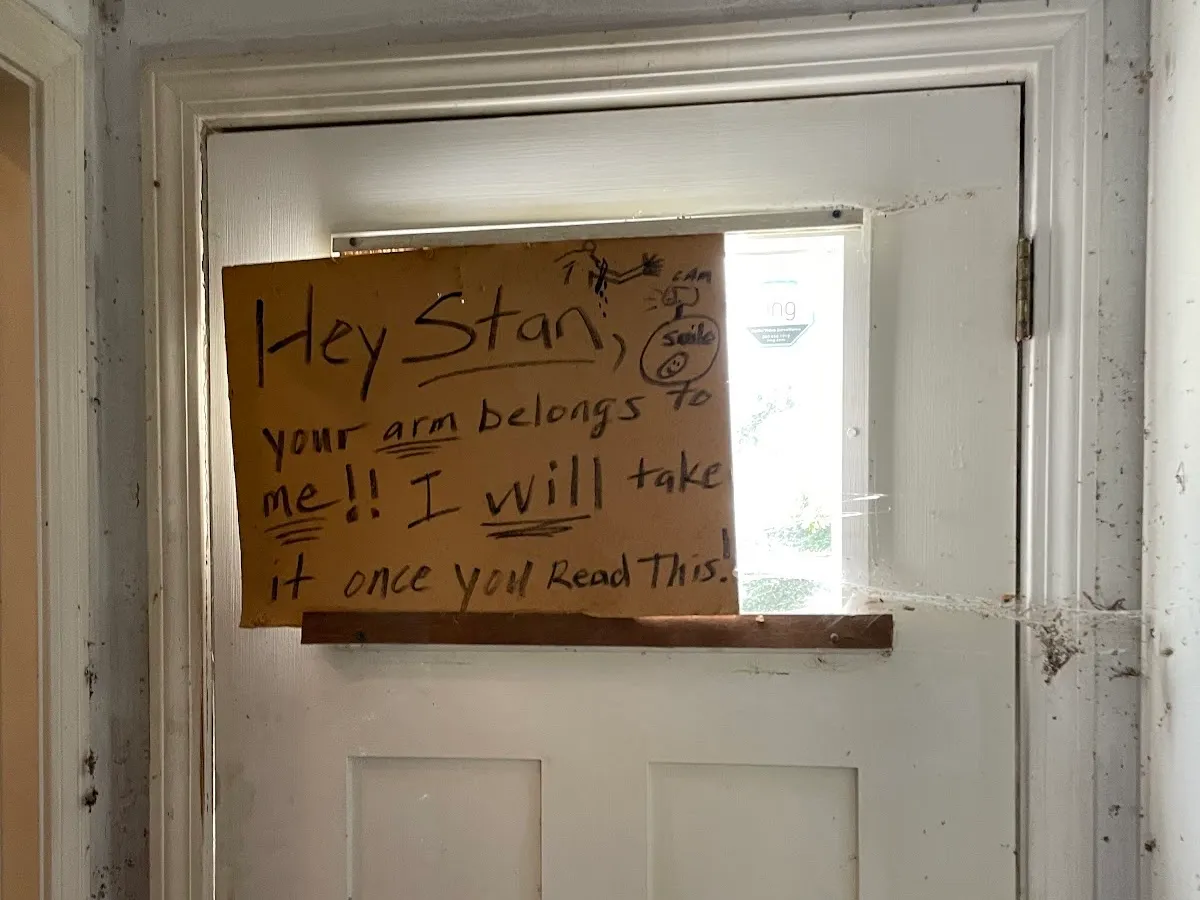 Hey Stan,
CAM
smile
your arm belongs to
me!! I will take
it once you Read This!
ng